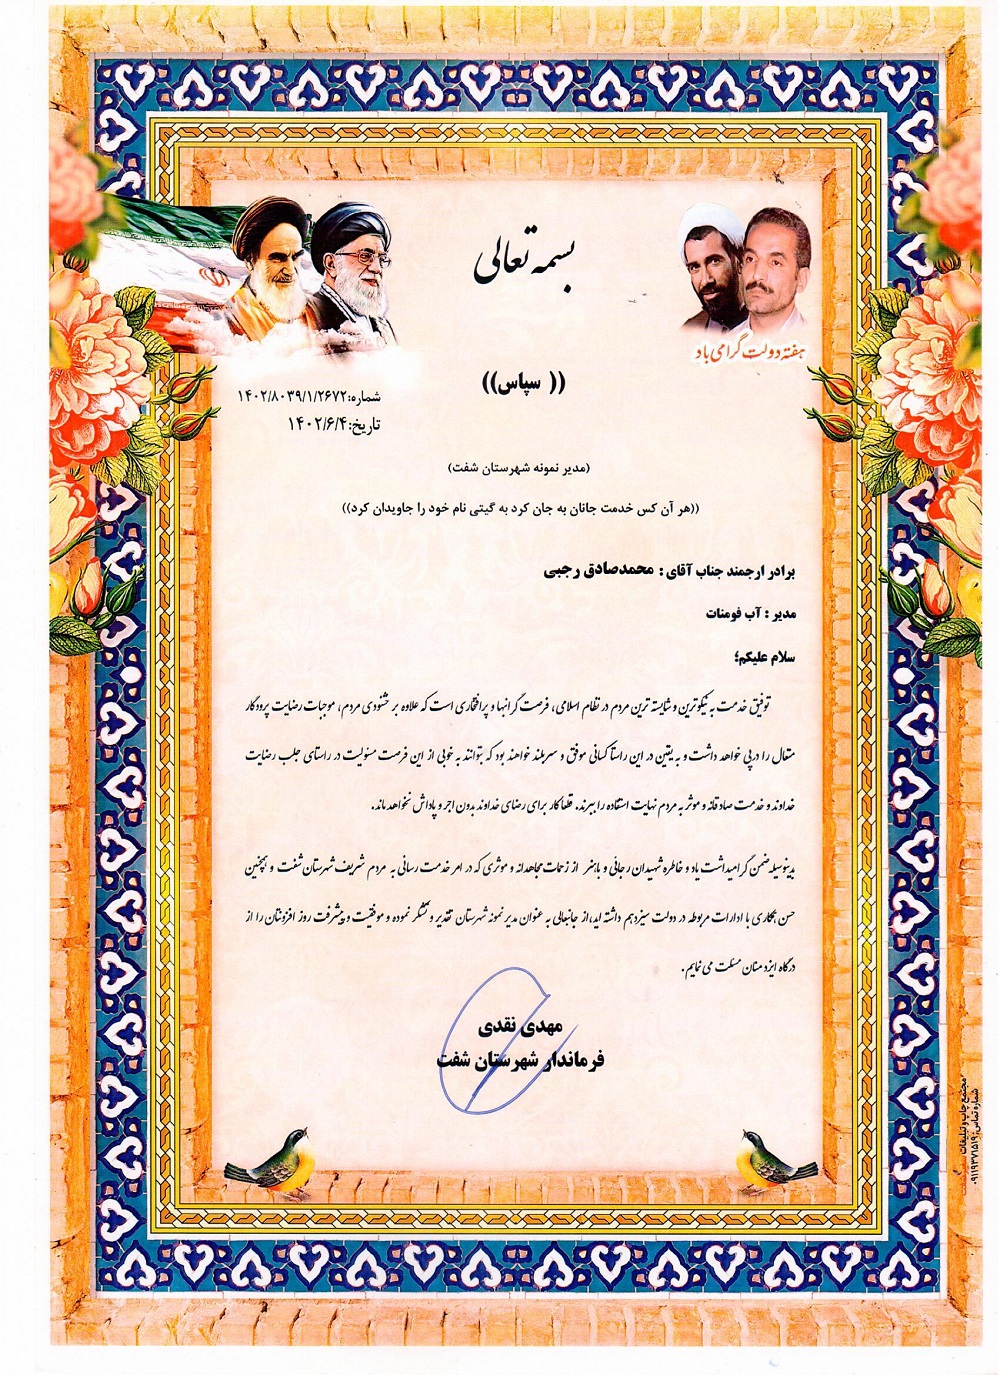 بسمه تعالی
هفته دولت گرامی باد
(( سپاس))
شماره:۱۴۰۲/۸۰۳۹/۱/۲۶۷۲
تاریخ:۱۴۰۲/۶/۴
(مدیر نمونه شهرستان شفت)
((هر آن کس خدمت جانان به جان کرد به گیتی نام خود را جاویدان کرد))
برادر ارجمند جناب آقای : محمدصادق رجبی
مدیر : آب فومنات
سلام علیکم؛
توفیق خدمت به نیکوترین و شایسته ترین مردم در نظام اسلامی، فرصت گرانبها و پرافتخاری است که علاوه بر خشنودی مردم، موجبات رضایت پرودگار
متعال را درپی خواهد داشت و به یقین در این راستا کسانی موفق و سربلند خواهند بود که بتوانند به خوبی از این فرصت مسئولیت در راستای جلب رضایت
خداوند و خدمت صادقانه و موثر به مردم نهایت استفاده را ببرند. قطعا کار برای رضای خداوند بدون اجر و پاداش نخواهد ماند.
بدینوسیله ضمن گرامیداشت یاد و خاطره شهیدان رجائی و باهنر از زحمات مجاهدانه و موثری که در امر خدمت رسانی به مردم شریف شهرستان شفت و همچنین
حسن همکاری با ادارات مربوطه در دولت سیزدهم داشته اید، از جنابعالی به عنوان مدیر نمونه شهرستان تقدیر و تشکر نموده و موفقیت و پیشرفت روز افزونتان را از
درگاه ایزد منان مسئلت می نمایم.
مهدی نقدی
فرماندار شهرستان شفت
مجتمع چاپ و تبلیغات
شماره تماس: ۰۹۱۱۹۳۷۱۵۱۹